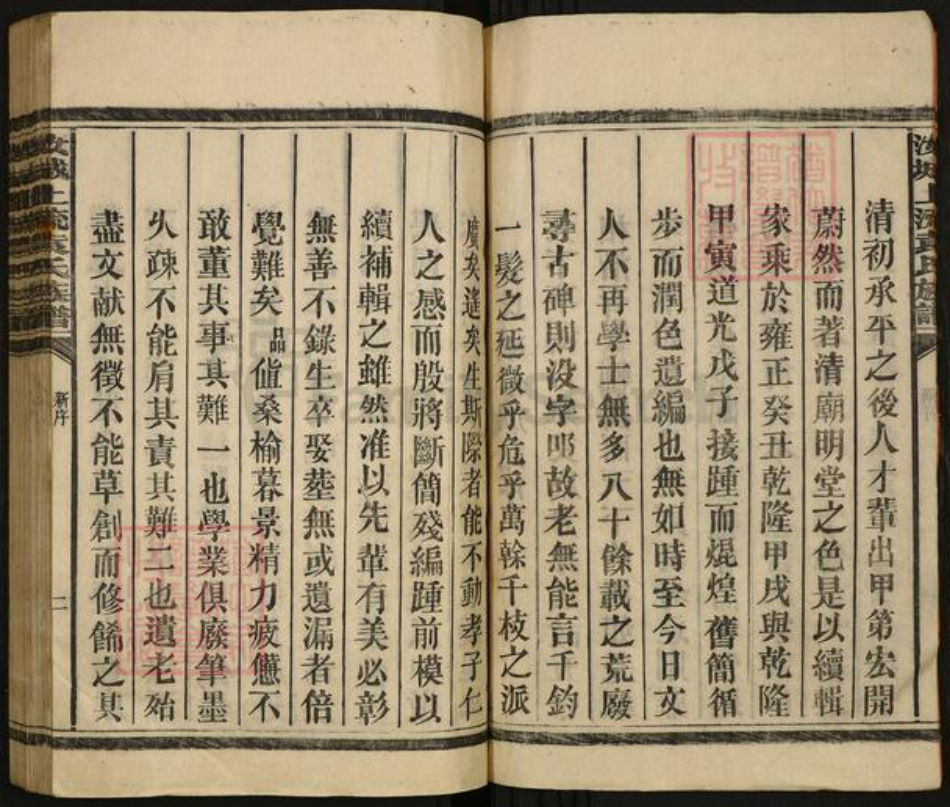 清初承平之後人才輩出甲第宏開
蔚然而著清廟明堂之色是以續輯
家乘於雍正癸丑乾隆甲戌與乾隆
甲寅道光戊子接踵而焜煌舊簡循
步而潤色遺編也無如時至今日文
人不再學士無多八十餘載之荒廢
尋古碑則没字叩故老無能言千鈞
一髮之延微乎危乎萬榦千枝之派
廣矣遙矣生斯際者能不動孝子仁
人之感而殷將斷簡殘編踵前模以
續補輯之雖然准以先輩有美必彰
無善不錄生卒娶塟無或遺漏者倍
覺難矣品值桑榆暮景精力疲憊不
敢董其事其難一也學業俱廢筆墨
久疎不能肩其責其難二也遺老殆
盡文献無徵不能草創而修餙之其
新序
二